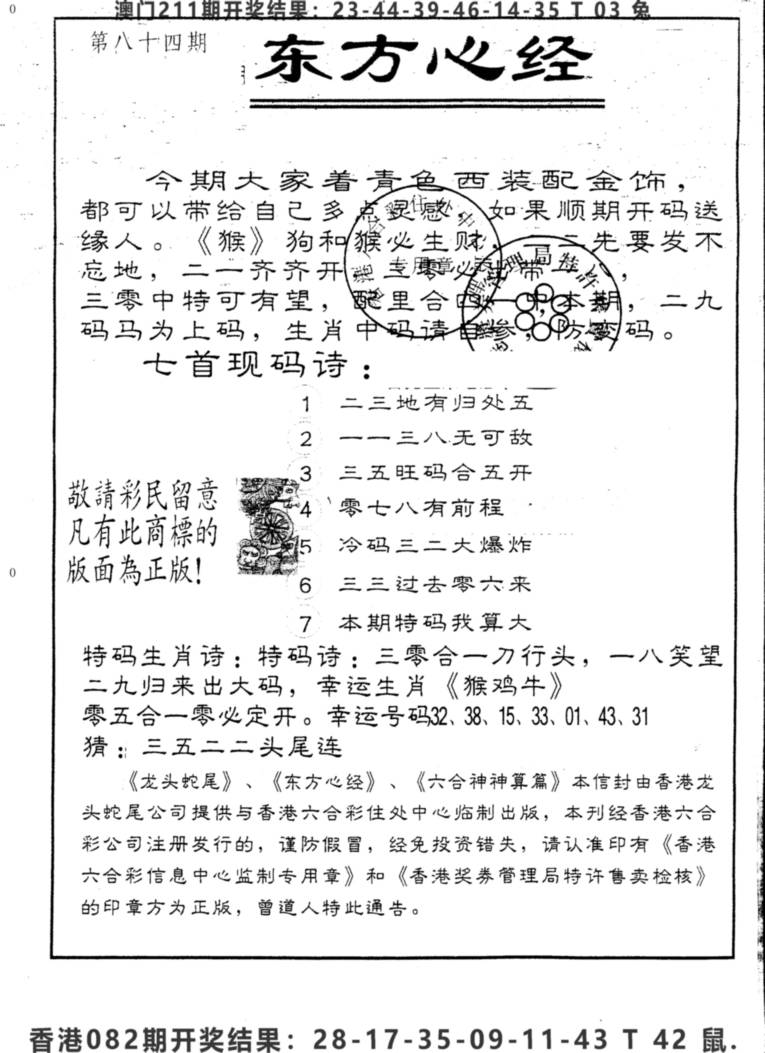 澳门211期开奖结果：23-44-39-46-14-35 T 03 兔
第八十四期
东方心经
今期大家着青色西装配金饰，
都可以带给自己多点灵感，如果顺期开码送
缘人。《猴》狗和猴必生财，一二先要发不
忘地，二一齐齐开，三零必
三零中特可有望，配里合四一中本期，二九
码马为上码，生肖中码请自参，防变码。
七首现码诗：
1 二三地有归处五
2 一一三八无可敌
3 三五旺码合五开
4 零七八有前程
5 冷码三二大爆炸
6 三三过去零六来
7 本期特码我算大
敬請彩民留意
凡有此商標的
版面為正版！
特码生肖诗：特码诗：三零合一刀行头，一八笑望
二九归来出大码，幸运生肖《猴鸡牛》
零五合一零必定开。幸运号码32、38、15、33、01、43、31
猜：三五二二头尾连
《龙头蛇尾》、《东方心经》、《六合神神算篇》本信封由香港龙
头蛇尾公司提供与香港六合彩住处中心临制出版，本刊经香港六合
彩公司注册发行的，谨防假冒，经免投资错失，请认准印有《香港
六合彩信息中心监制专用章》和《香港奖券管理局特许售卖检核》
的印章方为正版，曾道人特此通告。
香港082期开奖结果：28-17-35-09-11-43 T 42 鼠.